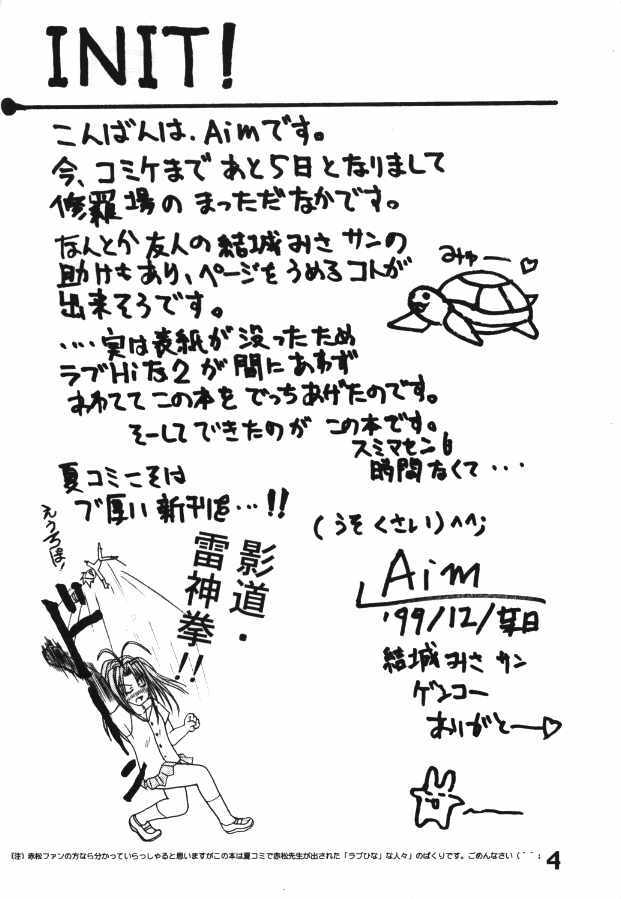 INIT!
こんばんは、Aimです。
今、コミケまで あと5日となりまして
修羅場の まっただなかです。
なんとか 友人の 結城みさ サンの
助けもあり、ページをうめるコトが
出来そうです。
みゅー♡
‥‥実は表紙が 没ったため
ラブHiな2 が間にあわず
あわてて この本を でっちあげたのです。
そーしてできたのが この本です。
スミマセン
時間なくて・・・
夏コミこそは
ブ厚い 新刊を…!!
(うそくさい)^^;
えうちぱ!
影道・
雷神拳!!
ドーン
Aim
'99/12/某日
結城みさ サン
ゲンコー
ありがとー♡
(注) 赤松ファンの方なら分かっていらっしゃると思いますがこの本は夏コミで赤松先生が出された「ラブひな」な人々」のぱくりです。ごめんなさい(^^;
4